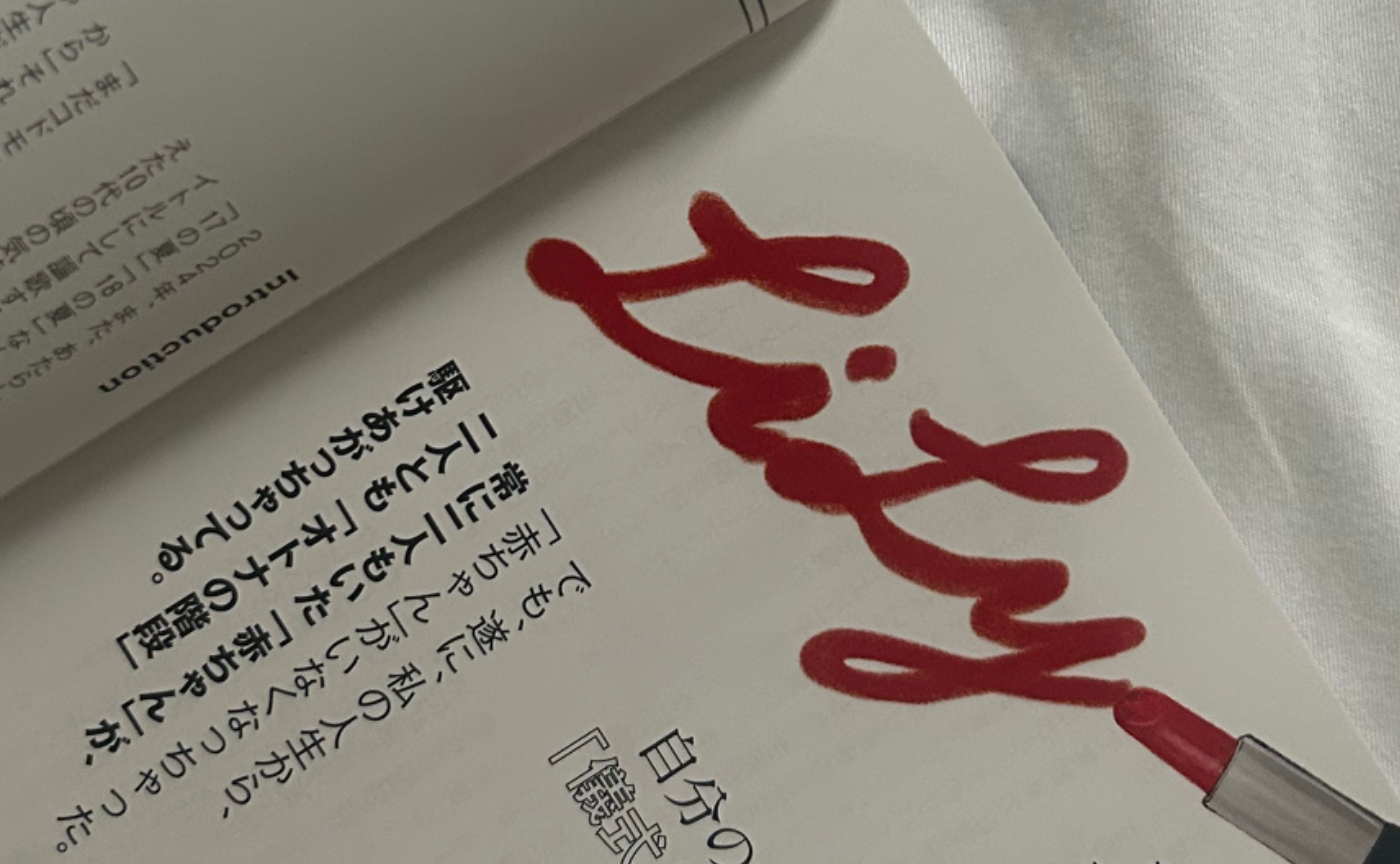 Lily
自分の
『儀式
でも、遂に、私の人生から、
「赤ちゃん」がいなくなっちゃった。
常に二人もいた「赤ちゃん」が、
二人とも「オトナの階段」
駆けあがっちゃってる。
Introduction
2024年、また、あたら
「17の夏」「18の夏」な
イトルにして
えた10代の頃の気
「まだコドモ
から「それ
人生